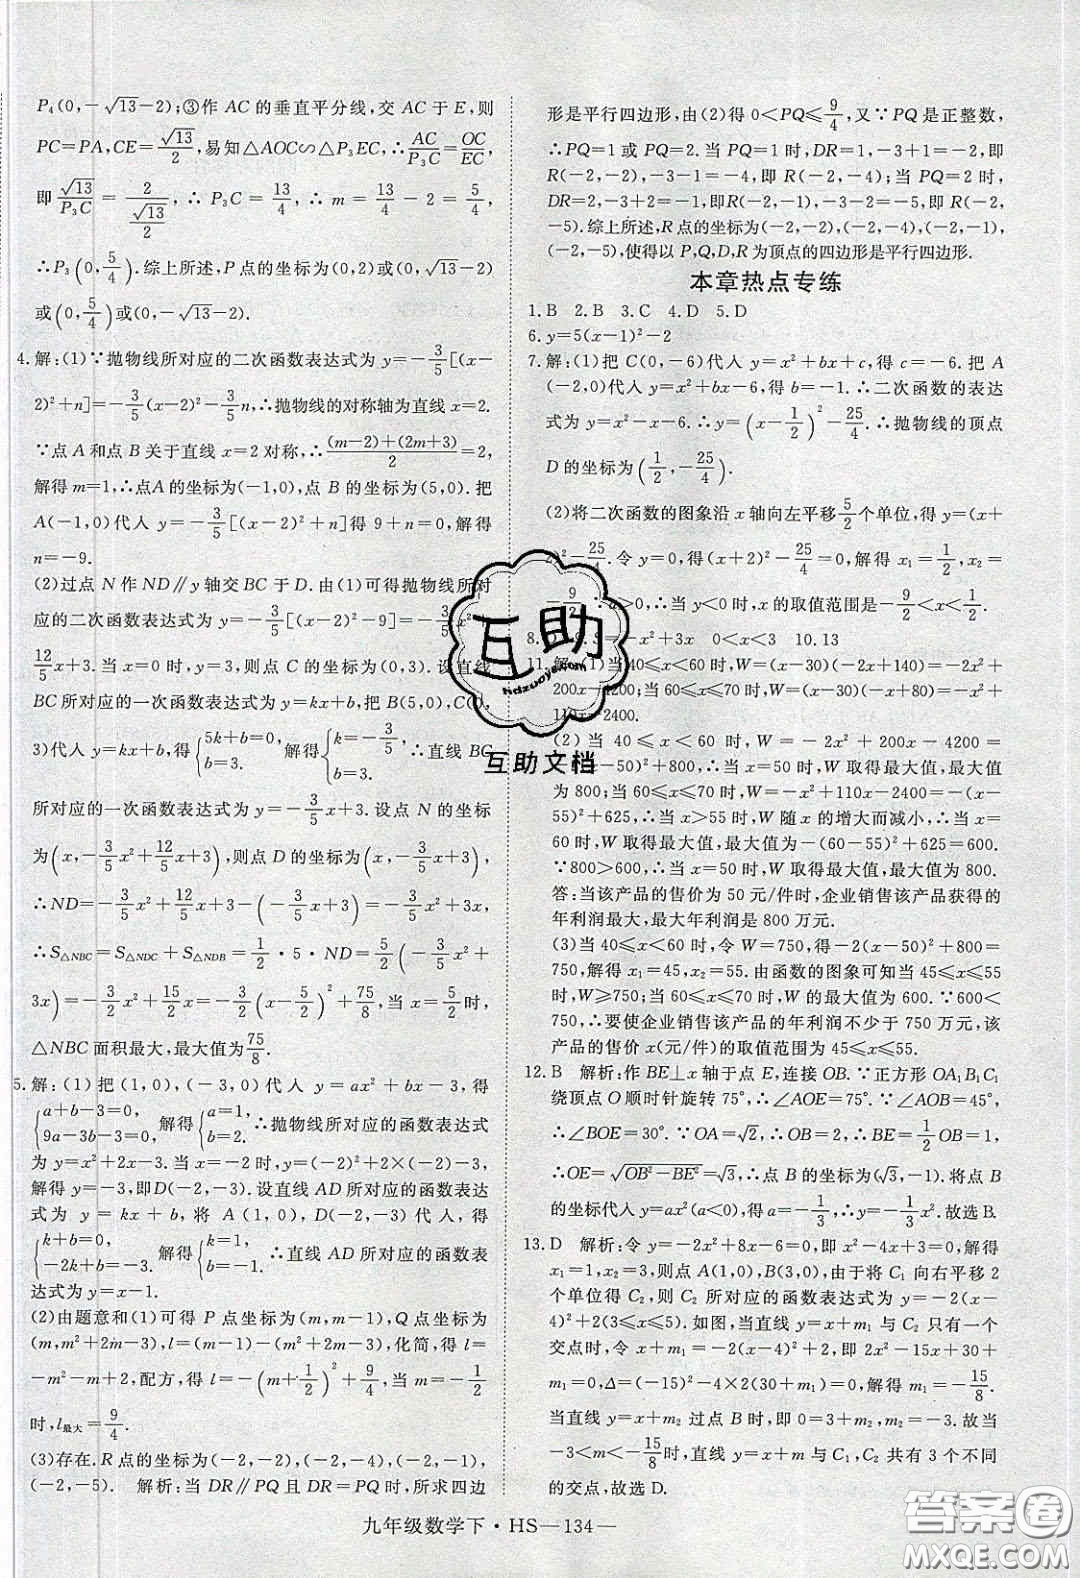 P₄(0,-√13-2);③作 AC 的垂直平分线,交 AC 于 E,则
PC=PA,CE=√13/2,易知△AOC∽△P₃EC,∴AC/P₃C=OC/EC,
即 √13/P₃C = 2/(√13/2),∴P₃C = 13/4,∴m = 13/4 - 2 = 5/4,
∴P₃(0,5/4).综上所述,P 点的坐标为(0,2)或(0,-2)
或(0,5/4)或(0,-√13-2).
4.解:(1)∵抛物线所对应的二次函数表达式为 y=-3/5[(x-
2)²+n]=-3/5(x-2)²-3/5n,∴抛物线的对称轴为直线 x=2.
∵点 A 和点 B 关于直线 x=2 对称,∴((m-2)+(2m+3))/2=2,
解得 m=1,∴点A 的坐标为(-1,0),点 B 的坐标为(5,0).把
A(-1,0)代人 y=-3/5[(x-2)²+n]得 9+n=0,解得
n=-9.
(2)过点 N 作 ND∥y 轴交 BC 于 D.由(1)可得抛物线所对
应的二次函数表达式为 y=-3/5[(x-2)²-9]=-3/5x²+
12/5x+3.当 x=0 时,y=3,则点 C 的坐标为(0,3).设直线
BC 所对应的一次函数表达式为 y=kx+b,把 B(5,0),C(0,
3)代人 y=kx+b,得{5k+b=0, b=3. 解得{k=-3/5, b=3. ∴直线 BC
所对应的一次函数表达式为 y=-3/5x+3.设点 N 的坐标
为(x,-3/5x²+12/5x+3),则点 D 的坐标为(x,-3/5x+3),
∴ND=-3/5x²+12/5x+3-(-3/5x+3)=-3/5x²+3x,
∴S△NBC=S△NDC+S△NDB=1/2·5·ND=5/2(-3/5x²+
3x)=-3/2x²+15/2x=-3/2(x-5/2)²+75/8,当 x=5/2时,
△NBC 面积最大,最大值为75/8.
5.解:(1)把(1,0),(-3,0)代人 y=ax²+bx-3,得
{a+b-3=0, 9a-3b-3=0, 解得{a=1, b=2. ∴抛物线所对应的函数表达式
为 y=x²+2x-3.当 x=-2 时,y=(-2)²+2×(-2)-3,
解得 y=-3,即D(-2,-3).设直线 AD 所对应的函数表达
式为 y=kx+b,将 A(1,0),D(-2,-3)代人,得
{k+b=0, -2k+b=-3. 解得{k=1, b=-1. ∴直线 AD 所对应的函数表
达式为 y=x-1.
(2)由题意和(1)可得 P 点坐标为(m,m-1),Q点坐标为
(m,m²+2m-3),l=(m-1)-(m²+2m-3),化简,得 l=
-m²-m+2,配方,得 l=-(m+1/2)²+9/4,当 m=-1/2
时,l最大=9/4.
(3)存在.R 点的坐标为(-2,-2),(-2,-4),(-2,-1),
(-2,-5). 解析:当 DR∥PQ 且 DR=PQ 时,所求四边
形是平行四边形,由(2)得 0<PQ≤9/4,又∵PQ 是正整数,
∴PQ=1 或 PQ=2.当 PQ=1 时,DR=1,-3+1=-2,即
R(-2,-2),-3-1=-4,即 R(-2,-4);当 PQ=2 时,
DR=2,-3+2=-1,即R(-2,-1),-3-2=-5,即R(-2,
-5).综上所述,R 点的坐标为(-2,-2),(-2,-4),(-2,-1),
(-2,-5),使得以 P,Q,D,R 为顶点的四边形是平行四边形.
本章热点专练
1.B 2.B 3.C 4.D 5.D
6.y=5(x-1)²-2
7.解:(1)把 C(0,-6)代人 y=x²+bx+c,得 c=-6.把 A
(-2,0)代人 y=x²+bx-6,得 b=-1.∴二次函数的表达
式为 y=x²-x-6.∴y=(x-1/2)²-25/4.∴抛物线的顶点
D 的坐标为(1/2,-25/4).
(2)将二次函数的图象沿 x 轴向左平移5/2个单位,得 y=(x+
2)²-25/4.令 y=0,得(x+2)²-25/4=0,解得 x₁=1/2,x₂=
-9/2.∵a>0,∴当 y<0 时,x 的取值范围是-9/2<x<1/2.
8. 9.S=-x²+3x 0<x<3 10.13
11.解:(1)当 40≤x<60 时,W=(x-30)(-2x+140)=-2x²+
200x-4200;当 60≤x≤70 时,W=(x-30)(-x+80)=-x²+
110x-2400.
(2)当 40≤x<60 时,W=-2x²+200x-4200=
-2(x-50)²+800,∴当 x=50 时,W 取得最大值,最大值
为 800;当 60≤x≤70 时,W=-x²+110x-2400=-(x-
55)²+625,∴当 x>55 时,W 随 x 的增大而减小,∴当 x=
60 时,W 取得最大值,最大值为-(60-55)²+625=600.
∵800>600,∴当 x=50 时,W 取得最大值,最大值为 800.
答:当该产品的售价为 50 元/件时,企业销售该产品获得的
年利润最大,最大年利润是 800 万元.
(3)当 40≤x<60 时,令 W=750,得-2(x-50)²+800=
750,解得 x₁=45,x₂=55.由函数的图象可知当 45≤x≤55
时,W≥750;当 60≤x≤70 时,W 的最大值为 600.∵600<
750,∴要使企业销售该产品的年利润不少于 750 万元,该
产品的售价 x(元/件)的取值范围为 45≤x≤55.
12.B 解析:作 BE⊥x 轴于点 E,连接 OB.∵正方形 OA₁B₁C₁
绕顶点 O 顺时针旋转 75°,∴∠AOE=75°.∵∠AOB=45°,
∴∠BOE=30°.∵OA=√2,∴OB=2,∴BE=1/2OB=1,
∴OE=√OB²-BE²=√3,∴点 B 的坐标为(√3,-1).将点 B
的坐标代人 y=ax²(a<0),得 a=-1/3,∴y=-1/3x².故选 B.
13.D 解析:令 y=-2x²+8x-6=0,即 x²-4x+3=0,解得
x₁=1,x₂=3,则点 A(1,0),B(3,0).由于将 C₁ 向右平移 2
个单位得 C₂,则 C₂ 所对应的函数表达式为 y=-2(x-
4)²+2(3≤x≤5).如图,当直线 y=x+m₁ 与 C₂ 只有一个
交点时,令 x+m₁=-2(x-4)²+2,得 2x²-15x+30+
m₁=0,Δ=(-15)²-4×2(30+m₁)=0,解得 m₁=-15/8.
当直线 y=x+m₂ 过点 B 时,即 0=3+m₂,m₂=-3.故当
-3<m<-15/8时,直线 y=x+m 与 C₁、C₂ 共有 3 个不同
的交点,故选 D.
互助
hdzuoye.com
互助文档
九年级数学下·HS—134—
答案圈
MXQE.COM